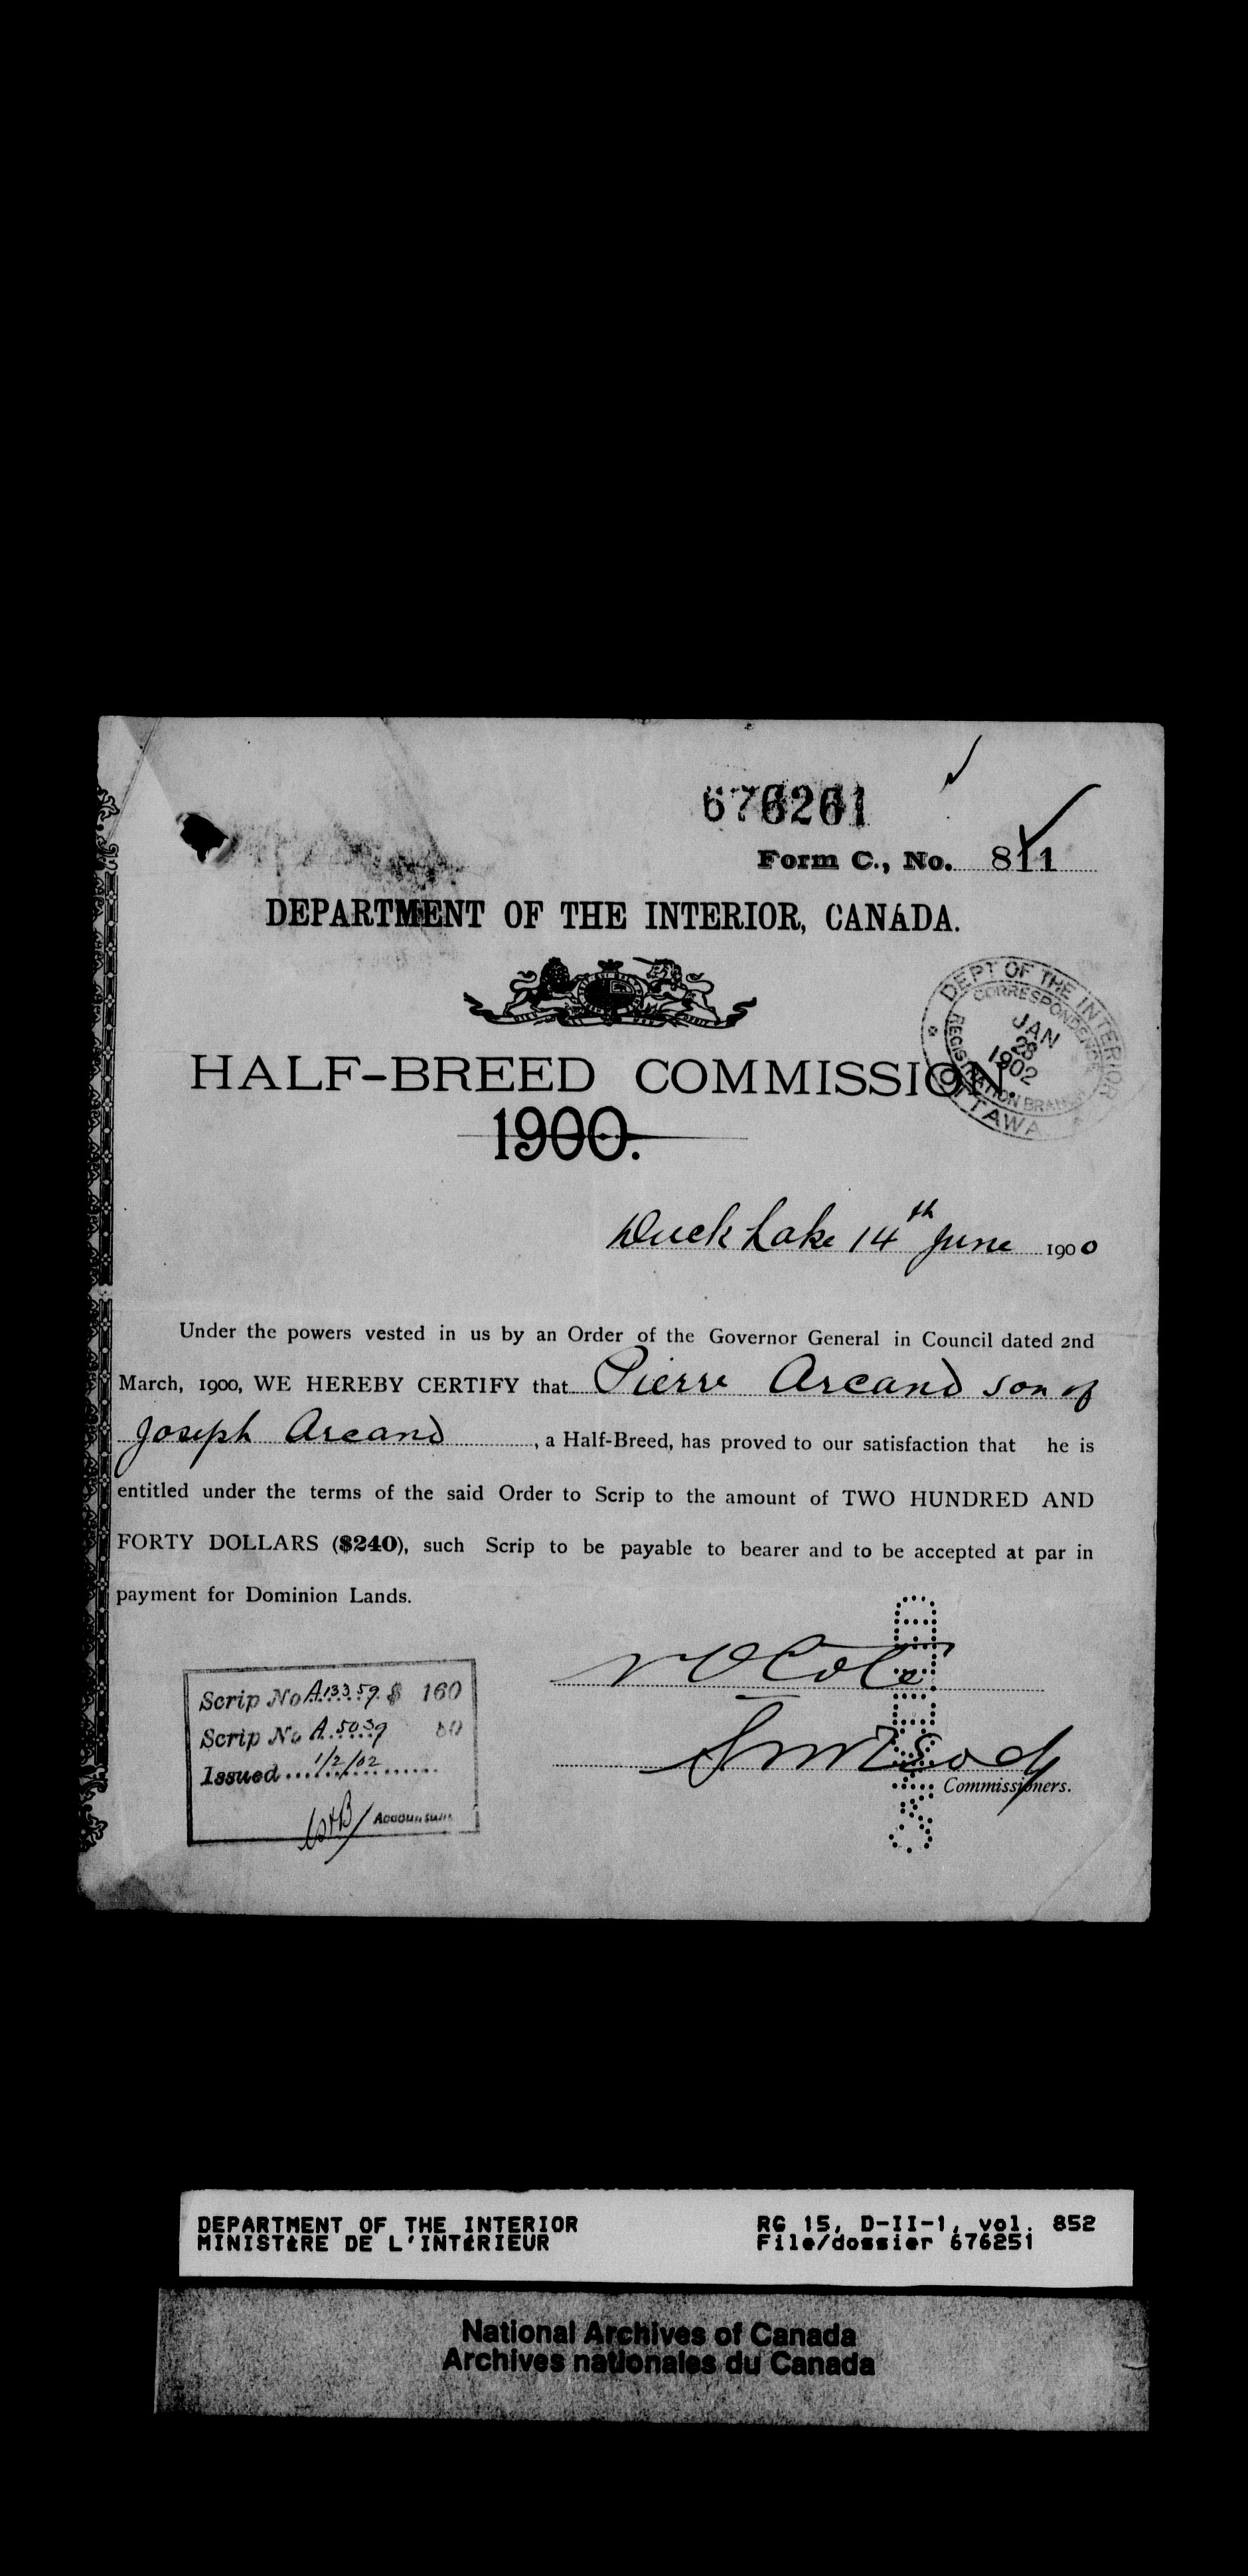 676261
Form C., No. 811
DEPARTMENT OF THE INTERIOR, CANADA.
HALF-BREED COMMISSION.
1900.
DEPT OF THE INTERIOR
CORRESPONDENCE
JAN
23
1902
REGISTRATION BRANCH
OTTAWA
Duck Lake 14th June 1900
Under the powers vested in us by an Order of the Governor General in Council dated 2nd
March, 1900, WE HEREBY CERTIFY that Pierre Arcand son of
Joseph Arcand, a Half-Breed, has proved to our satisfaction that he is
entitled under the terms of the said Order to Scrip to the amount of TWO HUNDRED AND
FORTY DOLLARS ($240), such Scrip to be payable to bearer and to be accepted at par in
payment for Dominion Lands.
Commissioners.
Scrip No A.13359. $ 160
Scrip No A.5039 80
Issued 1/2/02
Accountant
DEPARTMENT OF THE INTERIOR
MINISTÈRE DE L'INTÉRIEUR
RG 15, D-II-1, vol. 852
File/dossier 676251
National Archives of Canada
Archives nationales du Canada